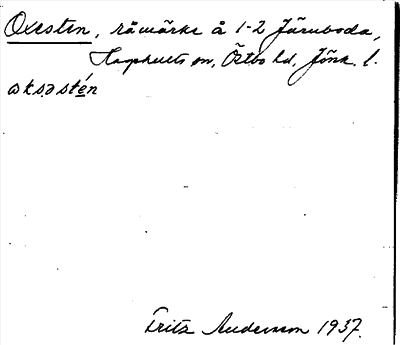 Oxesten, råmärke å 1-2 Järnboda,
Hagshults sn, Östbo hd, Jönk. l.
ωksəstén
Fritz Anderson 1937.